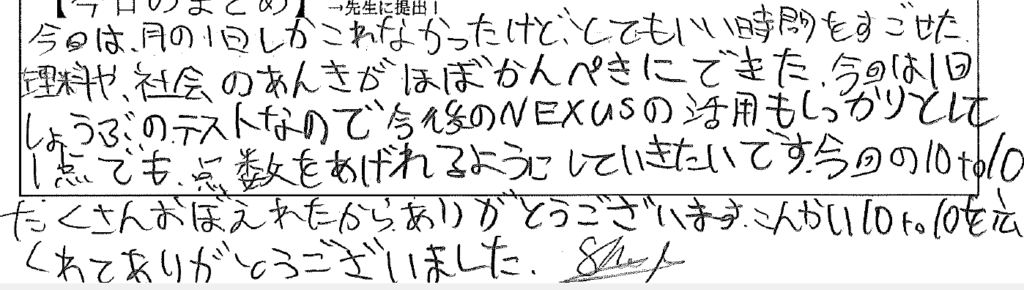 【今日のまとめ】→先生に提出！
今回は、月の1回しかこれなかったけど、とてもいい時間をすごせた.
理科や、社会のあんきがほぼかんぺきにできた.今回は1回
しょうぶのテストなので今後のNEXUSの活用もしっかりとして
1点でも、点数をあげれるようにしていきたいです.今回の10to10
たくさんおぼえれたから、ありがとうございます.こんかい10to10を
くれてありがとうございました.